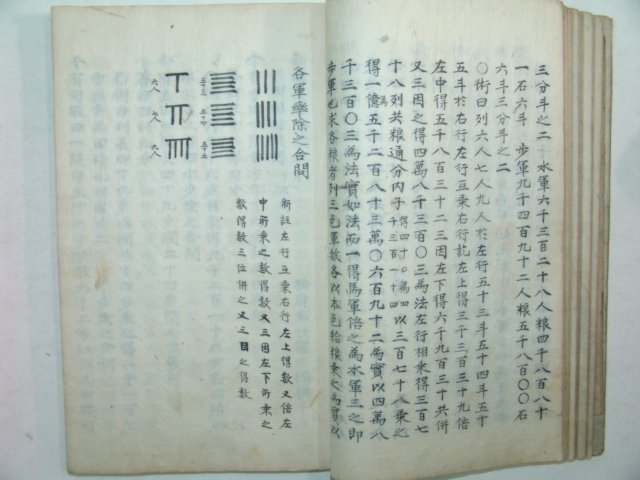 三分斗之二　水軍六千三百二十八人粮四千八百八十
一石六斗　步軍九千四百九十二人粮五千八百〇〇石
六斗三分斗之二
〇術曰列六人七人九人於左行五十三斗五十四斗五十
五斗於右行左行互乘右行訖左上得三千三百三十九倍
左中得五千八百三十二三因左下得六千九百三十共併
又三因之得四萬八千三百〇三為法左行相乘得三百七
十八列共粮通分內子以三百七十八乘之
得一億五千二百八十三萬〇六百九十二為實以四萬八
千三百〇三為法實如法而一得馬軍倍之為水軍三之即
步軍也求各粮者列三色軍數各以本色給粮乘之為實以
各軍率除之合問
六人　九人
新註左行互乘右行左上得數又倍左
中所乘之數得數又三因左下所乘之
數得數三位併之又三因之得數